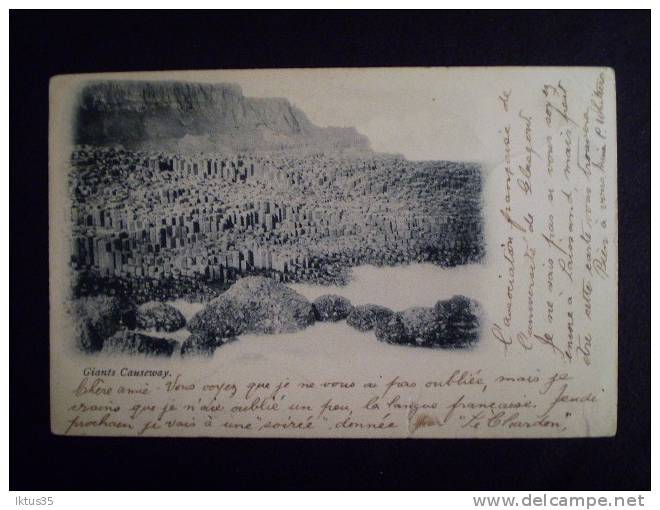 Giants Causeway.
Chère amie - Vous voyez que je ne vous ai pas oubliée, mais je
crains que je n'aie oublié un peu, la langue française. Jeudi
prochain je vais à une "soirée" donnée par "Le Chardon",
L'association française de
l'université de Glasgow.
Je ne sais pas si vous voyez
encore à mais fait
être cette carte vous trouvera
Bien à vous
Iktus35
www.delcampe.net